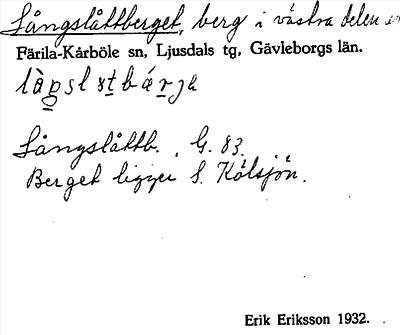 Långslåttberget, berg i västra delen av
Färila-Kårböle sn, Ljusdals tg, Gävleborgs län.
Långslåttb. G. 83.
Berget ligger S. Kölsjön.
Erik Eriksson 1932.